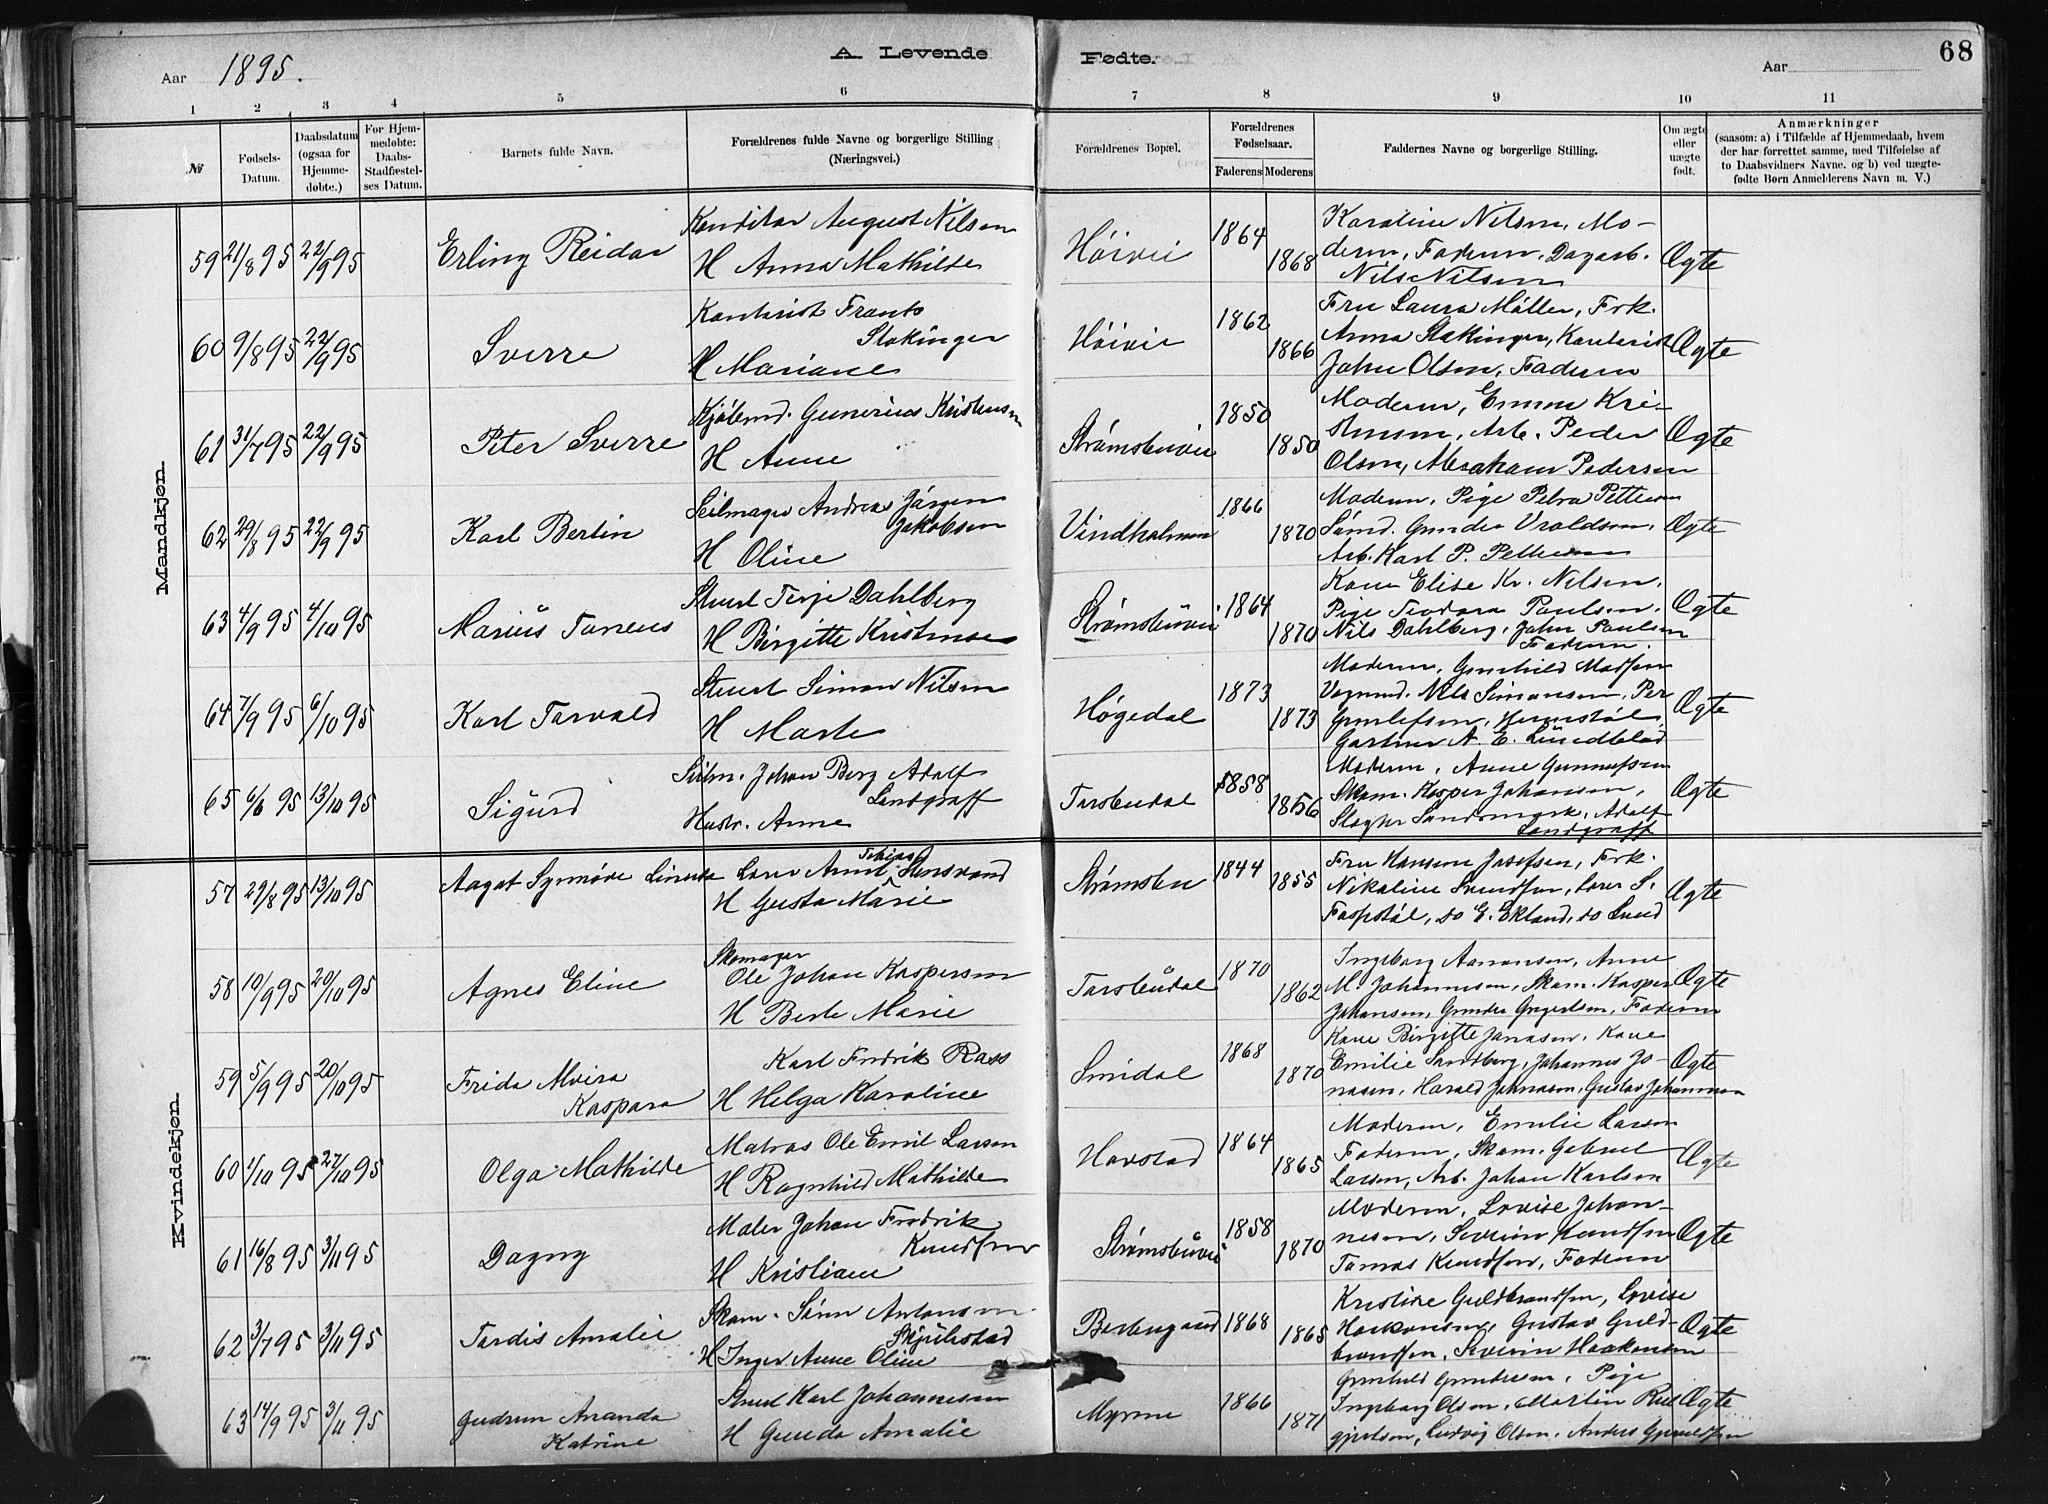 Aar 1895. A. Levende Fødte. Aar 68
1 2 3 4 5 6 7 8 9 10 11
№ Fødsels-Datum. Daabsdatum (ogsaa for Hjemmedøbte.) For Hjemmedøbte: Daabs-Stadfæstelses Datum. Barnets fulde Navn. Forældrenes fulde Navne og borgerlige Stilling (Næringsvei.) Forældrenes Bopæl. Forældrenes Fødselsaar. Faderens Moderens Faddernes Navne og borgerlige Stilling. Om ægte eller uægte født. Anmærkninger (saasom: a) i Tilfælde af Hjemmedaab, hvem der har forrettet samme, med Tilføielse af to Daabsvidners Navne, og b) ved uægtefødte Børn Anmelderens Navn m. V.)
Mandkjøn.
59 21/8 95 22/9 95 Erling Reidar Konditor August Nilsen
H Anna Mathilde Høivei 1864 1868 Karoline Nilsen, Mo-
deren, Faderen, Dagarb.
Nils Nilsen Ægte
60 9/8 95 22/9 95 Sverre Kontorist Frants
Stokinger
H Mariane Høivei 1862 1866 Fru Laura Møller, Frk.
Anna Stokinger, Kontorist
John Olsen, Faderen Ægte
61 31/7 95 22/9 95 Peter Sverre Kjøbmd. Gunerius Kristensen
H Anne Strømsbuvei 1850 1850 Moderen, Emma Kri-
stensen, Arb. Peder
Olsen, Abraham Pedersen Ægte
62 29/8 95 22/9 95 Karl Bertin Seilmager Andreas Jørgen
Jakobsen
H Oline Vindholmen 1866 1870 Moderen, Pige Petra Pettersen
Sømd. Gunder Vroldsen,
Arb. Karl P. Pettersen Ægte
63 4/9 95 4/10 95 Marius Tareus Stuert Terje Dahlberg
H Birgitte Kristense Strømsbuvei 1864 1870 Kone Elise Kr. Nilsen,
Pige Teodora Paulsen,
Nils Dahlberg, John Paulsen
Faderen. Ægte
64 7/9 95 6/10 95 Karl Torvald Stuert Simon Nilsen
H Marte Høgedal 1873 1873 Moderen, Gunhild Madsen
Vognmd. Nils Simonsen, Per
Gunlefsen,
Gartner A. E. Lundblad Ægte
65 6/6 95 13/10 95 Sigurd Seilm. Johan Berg Adolf
Landgraff
Hustr. Anne Torsbudal 1858 1856 Moderen, Anne Gunnufsen
Skom. Kasper Johansen,
Slagter Sandsmark, Adolf
Landgraff Ægte
Kvindekjøn.
57 29/8 95 13/10 95 Aagot Synnøve Linveda Lærer Arnt Tobias Stensvand
H Gusta Marie Strømsbu 1844 1855 Fru Hansine Josefsen, Frk.
Nikoline Svendsen, Lærer S.
Fospstøl, do E. Ekland, do Lund Ægte
58 10/9 95 20/10 95 Agnes Eline Skomager
Ole Johan Kaspersen
H Berte Marie Torsbudal 1870 1862 Ingeborg Aanonsen, Anne
M. Johannesen, Skom. Kasper
Johansen, Gunder Gregertsen, Faderen Ægte
59 5/9 95 20/10 95 Frida Alvira
Kaspara Karl Fredrik Rass
H Helga Karoline Smidal 1868 1870 Kone Birgitte Jonasen, Kone
Emilie Sandberg, Johannes Jo-
nasen, Harald Johnasen, Gustav Johannesen Ægte
60 1/10 95 27/10 95 Olga Mathilde Matros Ole Emil Larsen
H Ragnhild Mathilde Havstad 1864 1865 Moderen, Emilie Larsen
Faderen, Skom. Gabriel
Larsen, Arb. Johan Karlsen Ægte
61 16/8 95 3/11 95 Dagny Maler Johan Fredrik
Knudsen
H Kristiane Strømsbuvei 1858 1870 Moderen, Lovise Johan-
nesen, Severin Knudsen
Tomas Knudsen, Faderen Ægte
62 3/7 95 3/11 95 Tordis Amalie Skom. Søren Antonsen
Skjulestad
H Inger Anne Oline Barbugaard 1868 1865 Kristine Guldbrandsen, Lovise
Haakonsen, Gustav Guld-
brandsen, Severin Haakonsen Ægte
63 14/9 95 3/11 95 Gudrun Ananda
Katrine Stuert Karl Johannesen
H Gunda Amalie Myrene 1866 1871 Gunhild Gundersen, Pige
Ingeborg Olsen, Martin Rei-
gjertsen, Ludvig Olsen, Anders Gjeruldsen Ægte